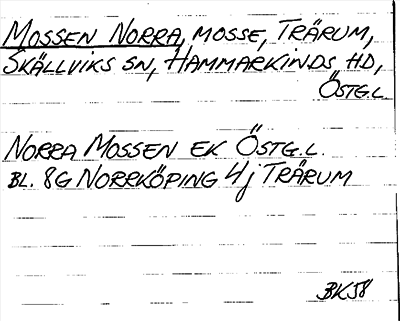 MOSSEN NORRA, MOSSE, TRÄRUM,
SKÄLLVIKS SN, HAMMARKINDS HD,
ÖSTG.L.
NORRA MOSSEN EK ÖSTG.L.
BL. 8G NORRKÖPING 4j TRÄRUM
BK58